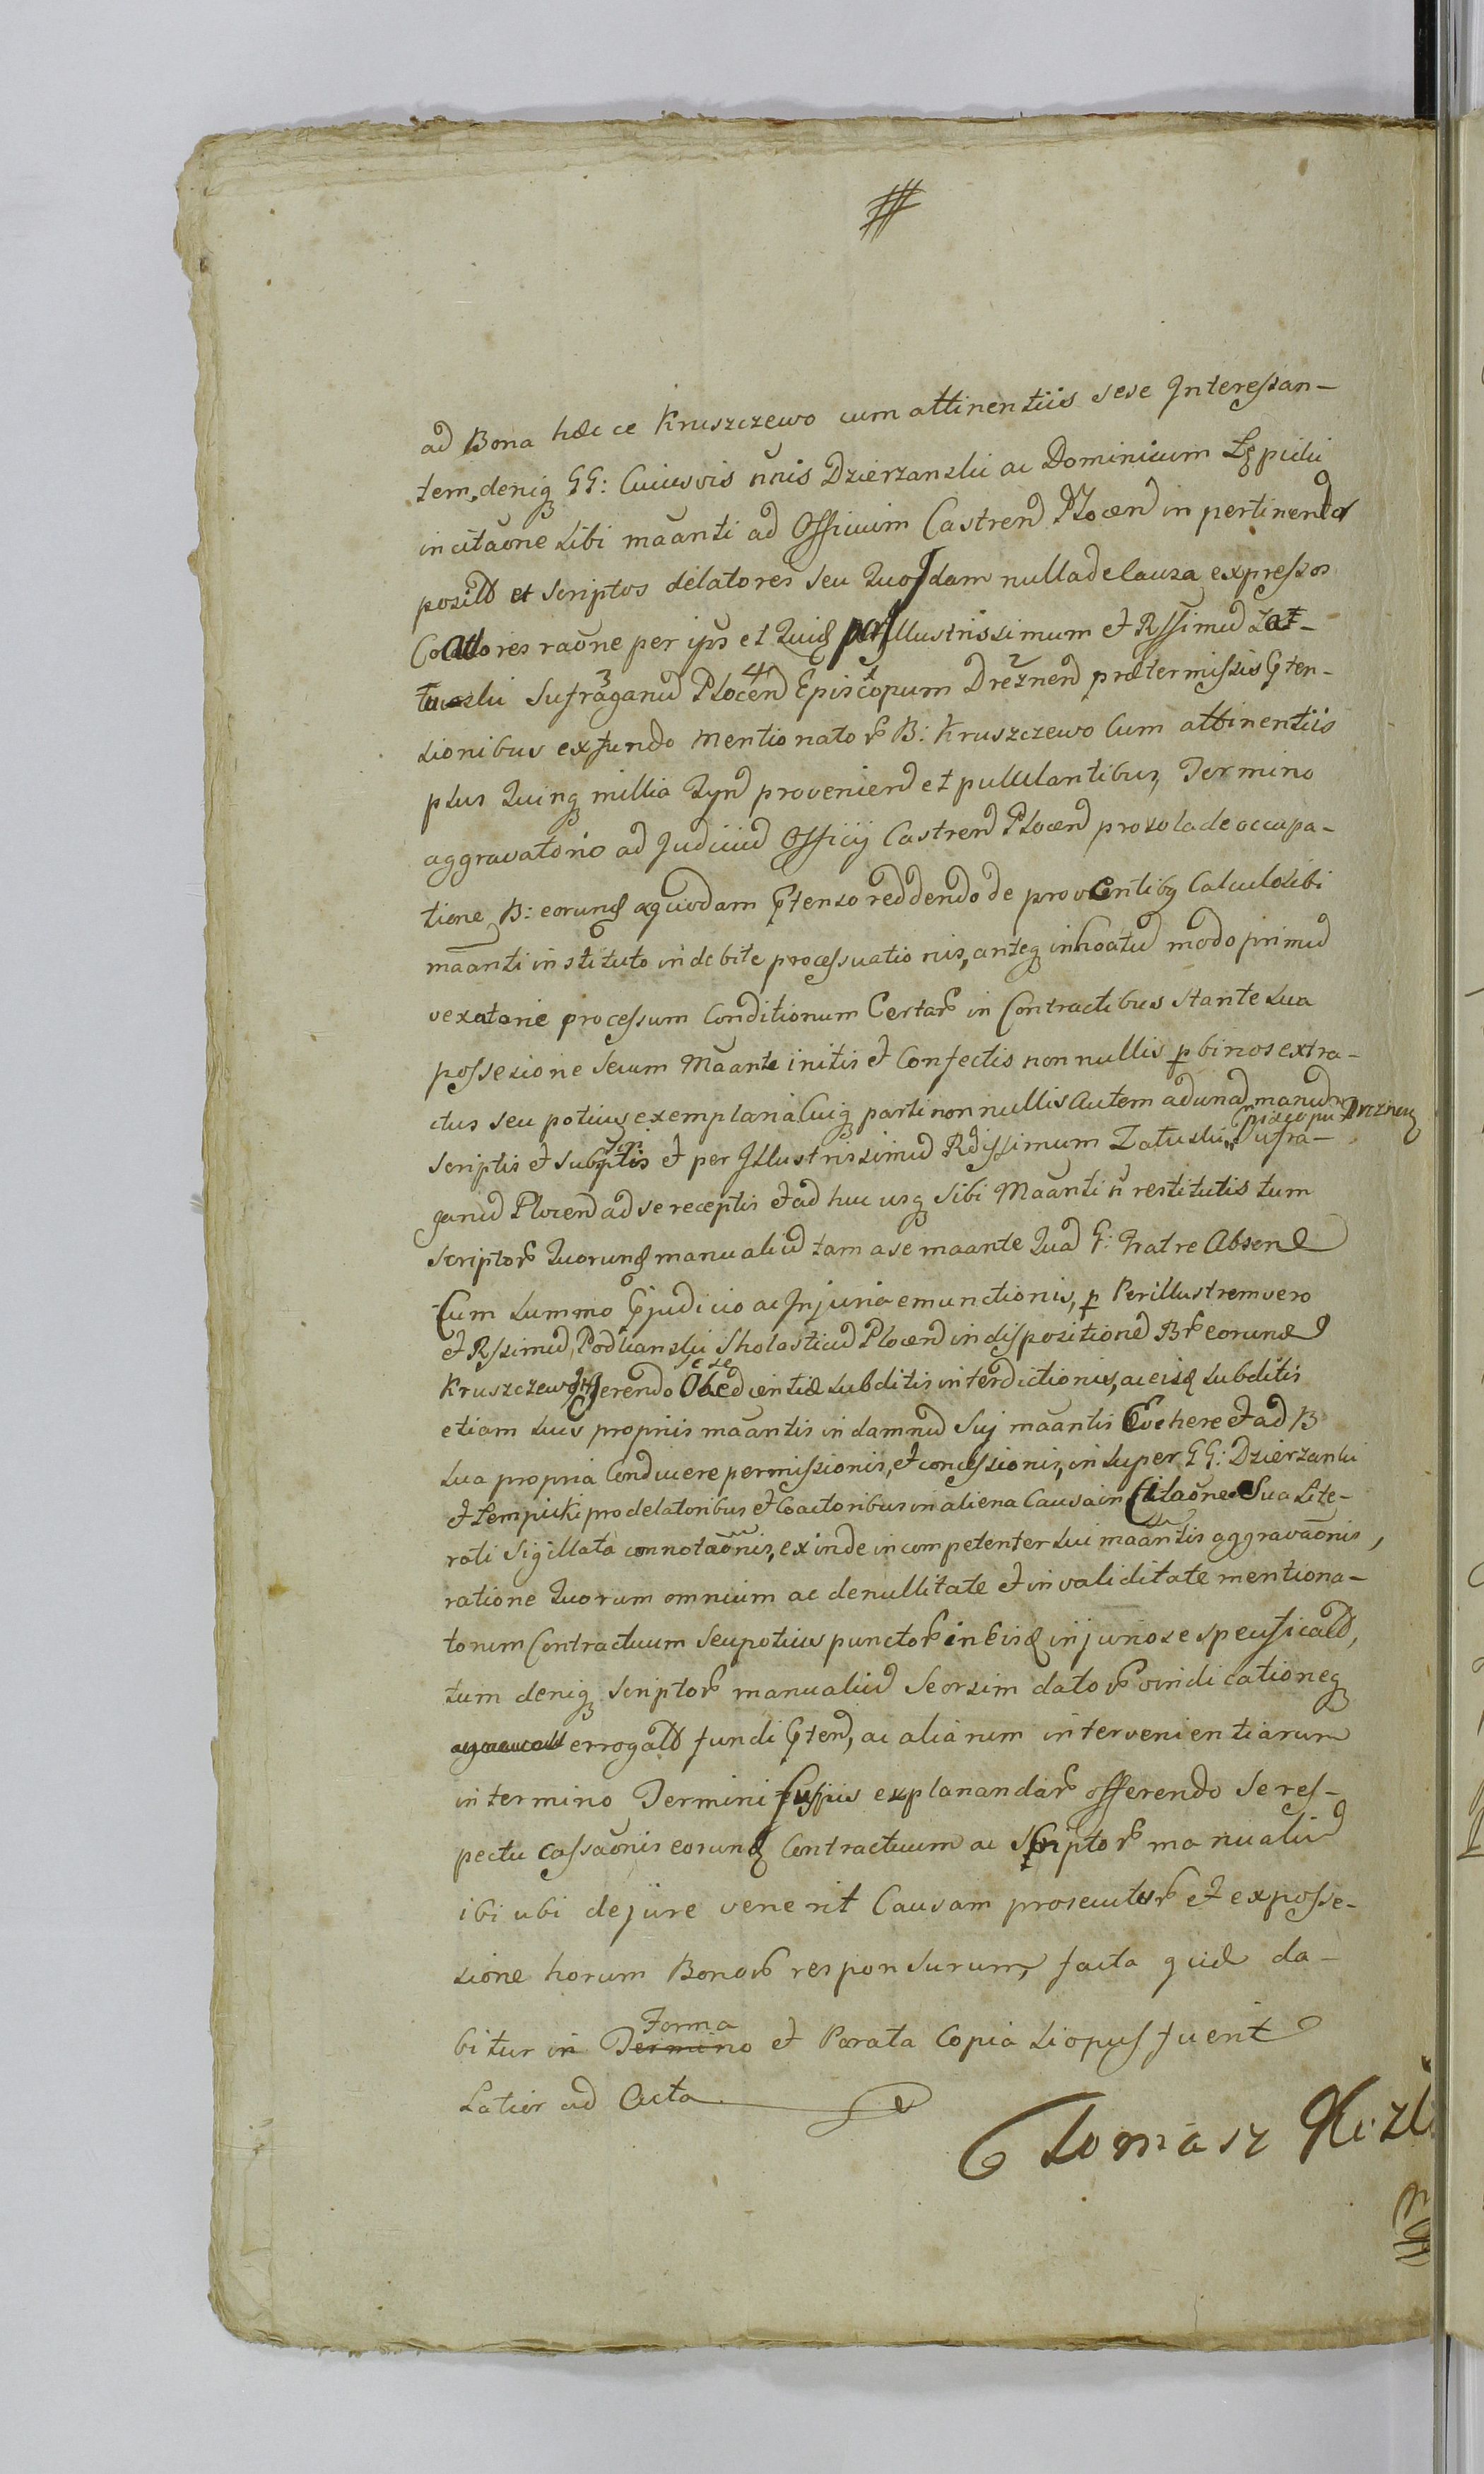 ad Bona hæc ce Kruszczewo cum attinentiis sese Interessan-
tem, deniq GG: Cuiusvis nnis Dzierzanski ac Dominicum Lępicki
in citaõne sibi maãnti ad Officium Castren Plocen in pertinenter
posit et scriptos delatores seu Quosdam nulla de causa expressos
Coactores raõne per ipsos et Quid per Illustrissimum et Rssimum Zat-
tuski Sufraganũ Plocen Episcopum Dreznen prætermissis prten-
sionibus ex fundo mentionator B: Kruszczewo Cum attinentiis
plus Quinq millia Tyn provenien et pullulantibus, Termino
aggravatorio ad Judiciũ Officij Castren Plocen pro sola de occupa-
tione B: eorund ac quodam prtenso reddendo de proventibq Calculo sibi
maãnti instituto indebite processuationis, anteq inhoatũ modo primũ
vexatorie processum Conditionum Certar in Contractibus stante sua
possesione secum Maante initis et Confectis non nullis p binos extra-
ctus seu potius exemplaria Cuiq parti non nullis autem ad unã manũ
Episcopu Dreznen
scriptis et subscriptis et per Illustrissimũ Rdissimum Zatuski Sufra-
ganũ Plocen ad se receptis et ad huc usq sibi Maãnti ñ restitutis tum
scriptor Quorund manualiũ tam a se maante Quã G: Fratre Absen
Cum summo prjudicio ac Injuria emunctionis, p Perillustrem vero
et Rssimũ Podkanski Sholasticũ Plocen in dispositionẽ Br eorund
sese
Kruszczewo Ingerendo Obedientiæ subditis interdictionis, ac eisd subditis
etiam suis propriis maantis in damnũ suj maantis Evehere et ad B
sua propria Conducere permissionis, et concessionis, in super GG: Dzierzanski
et Lempicki pro delatoribus et Coactoribus in aliena Causa in Citaõne Sua Lite-
rali Sigillata connotaõnis, ex inde incompetenter sui maãntis aggravaõnis,
ratione Quorum omnium ac de nullitate et invaliditate mentiona-
torum Contractuum seu potius punctor in eisd injuriose specificat,
tum deniq scriptor manualiũ seorsim dator vindicationeq
errogat fundi prten, ac aliarum intervenientiarum
in termino Termini fusius explanandar offerendo se res-
pectu cassaõnis eorund Contractuum ac scriptor manualiũ
ibi ubi de jure venerit Causam prosecutur et ex posse-
sione horum Bonor responsurum, facta quæ da-
Forma
bitur in Termino et Parata Copia si opus fuerit
Latior ad Acta
Tomasz